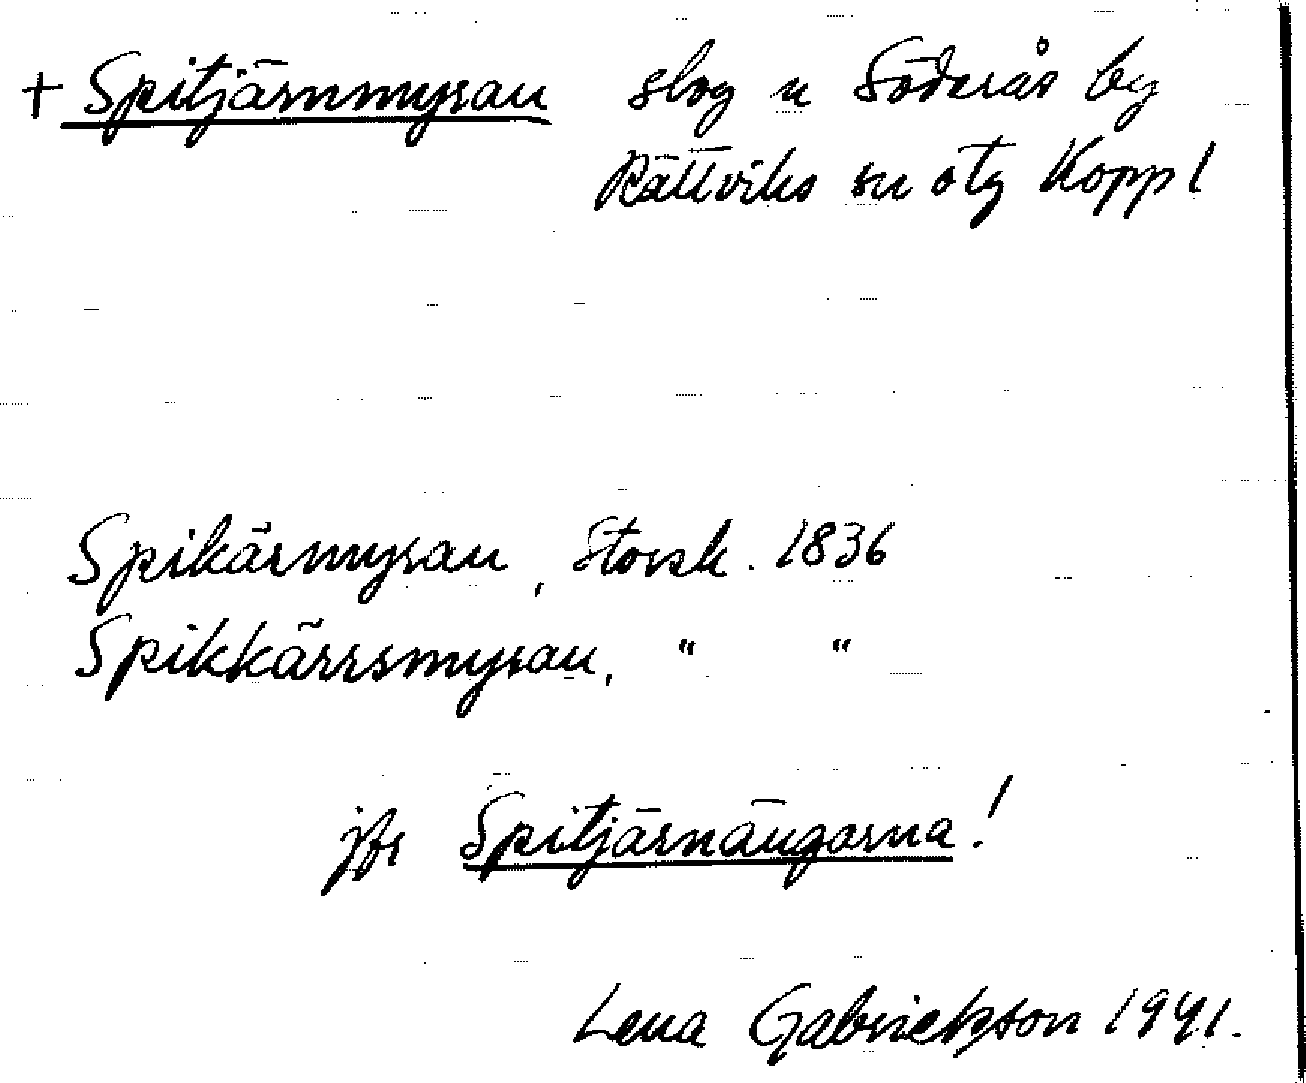 + Spitjärnmyran slog u Söderås by
Rättviks sn otg Kopp l
Spikärmyran, Storsk. 1836
Spikkärrsmyran, " "
jfr Spitjärnängarna!
Lena Gabrielsson 1991.